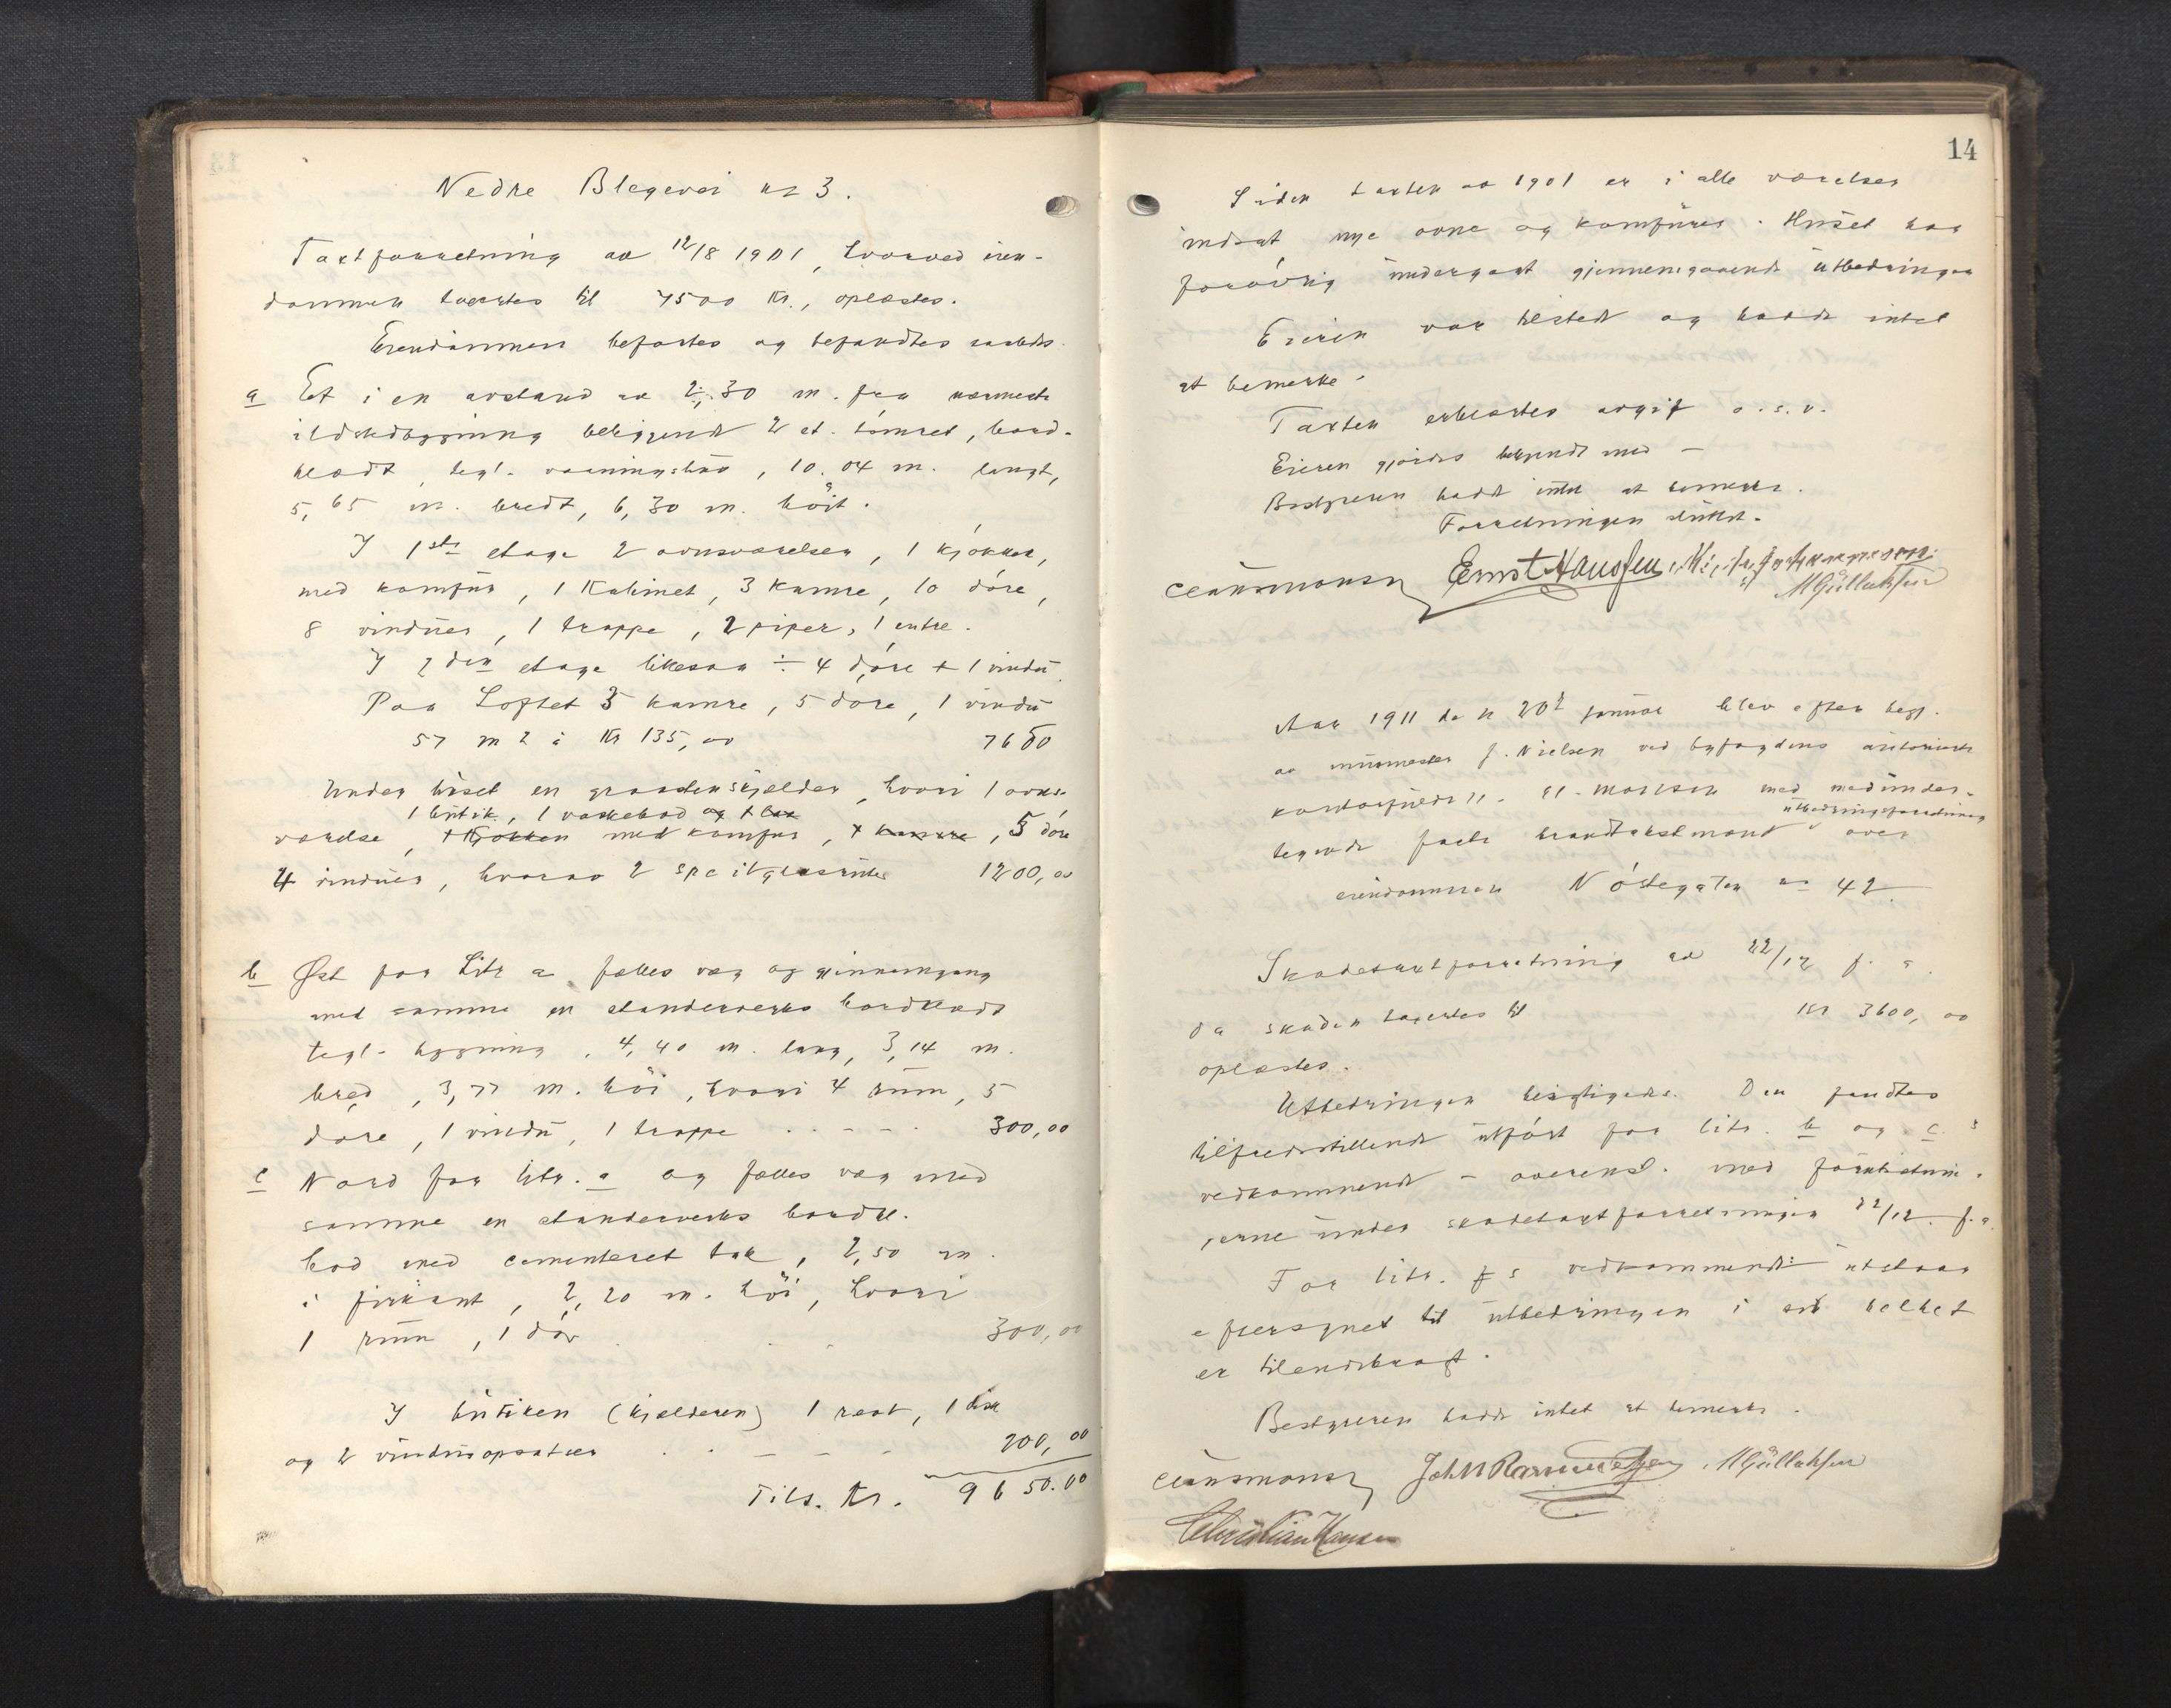 Nedre Blegevei no 3.
Taxtforretning av 12/8 1901, hvorved eien-
dommen taxertes til 7500 Kr., oplæstes.
Eiendommen befartes og befandtes saaledes.
a Et i en avstand av 2,30 m. fra nærmeste
ildstedbygning beliggende 2 et. tømret, bord-
klædt tegl. vaaningshus, 10.04 m. langt,
5,65 m. bredt, 6,30 m. høit.
I 1ste etage 2 ovnsværelser, 1 kjøkken,
med komfur, 1 Kabinet, 3 kamre, 10 døre,
8 vinduer, 1 trappe, 2 piper, 1 entre.
I 2den etage likesaa ÷ 4 døre + 1 vindu
Paa Loftet 3 kamre, 5 døre, 1 vindu
57 m 2 à Kr 135,00 7650
Under huset en graastenskjælder, hvori 1 ovns-
1 butik, 1 vaskebod og 1
værelse, 1 Kjøkken med komfur, 1 kamre, 5 døre
4 vinduer, hvorav 2 speilglasruter 1200,00
b Øst for Litr a, fælles væg og gjennemgang
med samme en standerverks bordklædt
tegl- bygning, 4,40 m. lang, 3,14 m.
bred, 3,77 m. høi, hvori 4 rum, 5
døre, 1 vindu, 1 trappe . . - - . 300,00
c Nord for litr. a og fælles væg med
samme en standerverks bordkl.
bod med cementeret tak, 2,50 m.
i firkant, 2,20 m. høi, hvori
1 rum, 1 dør . . . 300,00
I butiken (kjælderen) 1 reol, 1 disk
og 2 vinduopsatser . . - - - 200,00
Tils. Kr. 9650.00
14
Siden taxten av 1901 er i alle værelser
indsat nye ovne og komfurer. Huset har
forøvrig undergaat gjennemgaaende utbedringer
Eieren var tilstede og hadde intet
at bemerke.
Taxten erklærtes avgit o.s.v.
Eieren gjordes bekjendt med -
Bestyreren hadde intet at bemerke.
Forretningen sluttet.
Cl. Monsen Ernst Hansen, M Gullaksen
Aar 1911 den 20de januar blev efter begj.
av murmester J. Nielsen ved byfogdens autoriserte
kontorfuldm. Cl. Monsen med medunder-
utbedringsforretning
tegnede faste brandtakstmænd over
eiendommen Nøstegaten no 42.
Skadetaxtforretning av 22/12 f. a.
da skaden taxertes til Kr 3600,00
oplæstes.
Utbedringen besigtigedes. Den fandtes
tilfredsstillende utført for litr. b og c s
vedkommende - overensst. med forutsætnin-
gerne under skadetaxtforretningen 22/12 f. a.
For litr. f s vedkommende utstaar
eftersynet til utbedringen i sin helhet
er tilendebragt.
Bestyreren hadde intet at bemerke.
Cl. Monsen John Rasmussen, M Gullaksen
Christian Hansen